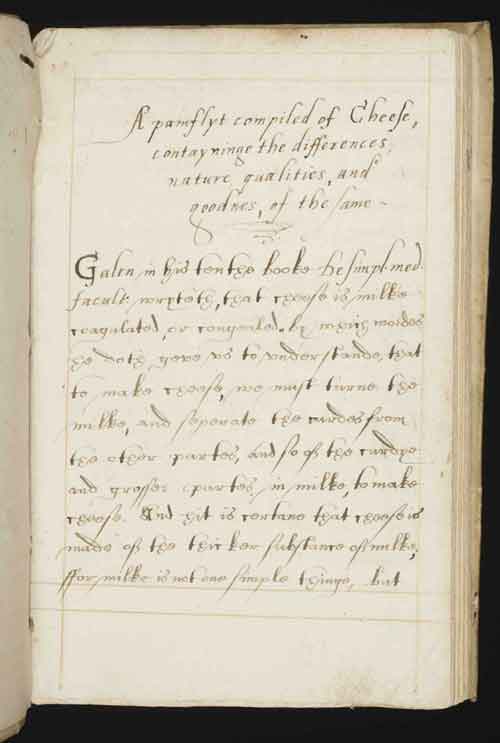 A pamflyt compiled of Cheese,
contayninge the differences,
nature, qualities, and
goodnes, of the same
Galen in his tenthe booke de simpl. med.
facult. wryteth, that cheese is milke
coagulated, or congealed. by which wordes
he doth geve us to understande, that
to make cheese, we must turne the
milke, and seperate the curdes from
the other partes, and so of the curdye
and grosser partes in milke, to make
cheese. And hit is certane that cheese is
made of the thicker substance of milke,
ffor milke is not one simple thinge, but